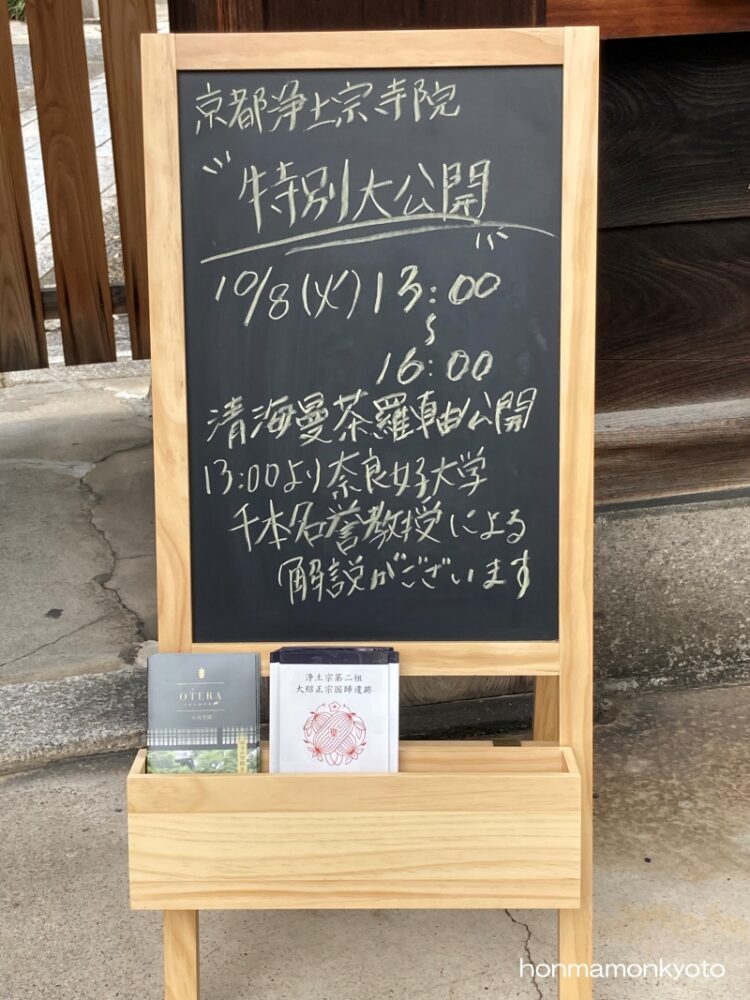 京都浄土宗寺院
特別大公開
10/8(火)13:00
〜
16:00
清海曼荼羅軸公開
13:00より奈良女子大学
千本名誉教授による
解説がございます
OTERA
浄土宗第二祖
大紹正宗国師遺跡
honmamonkyoto